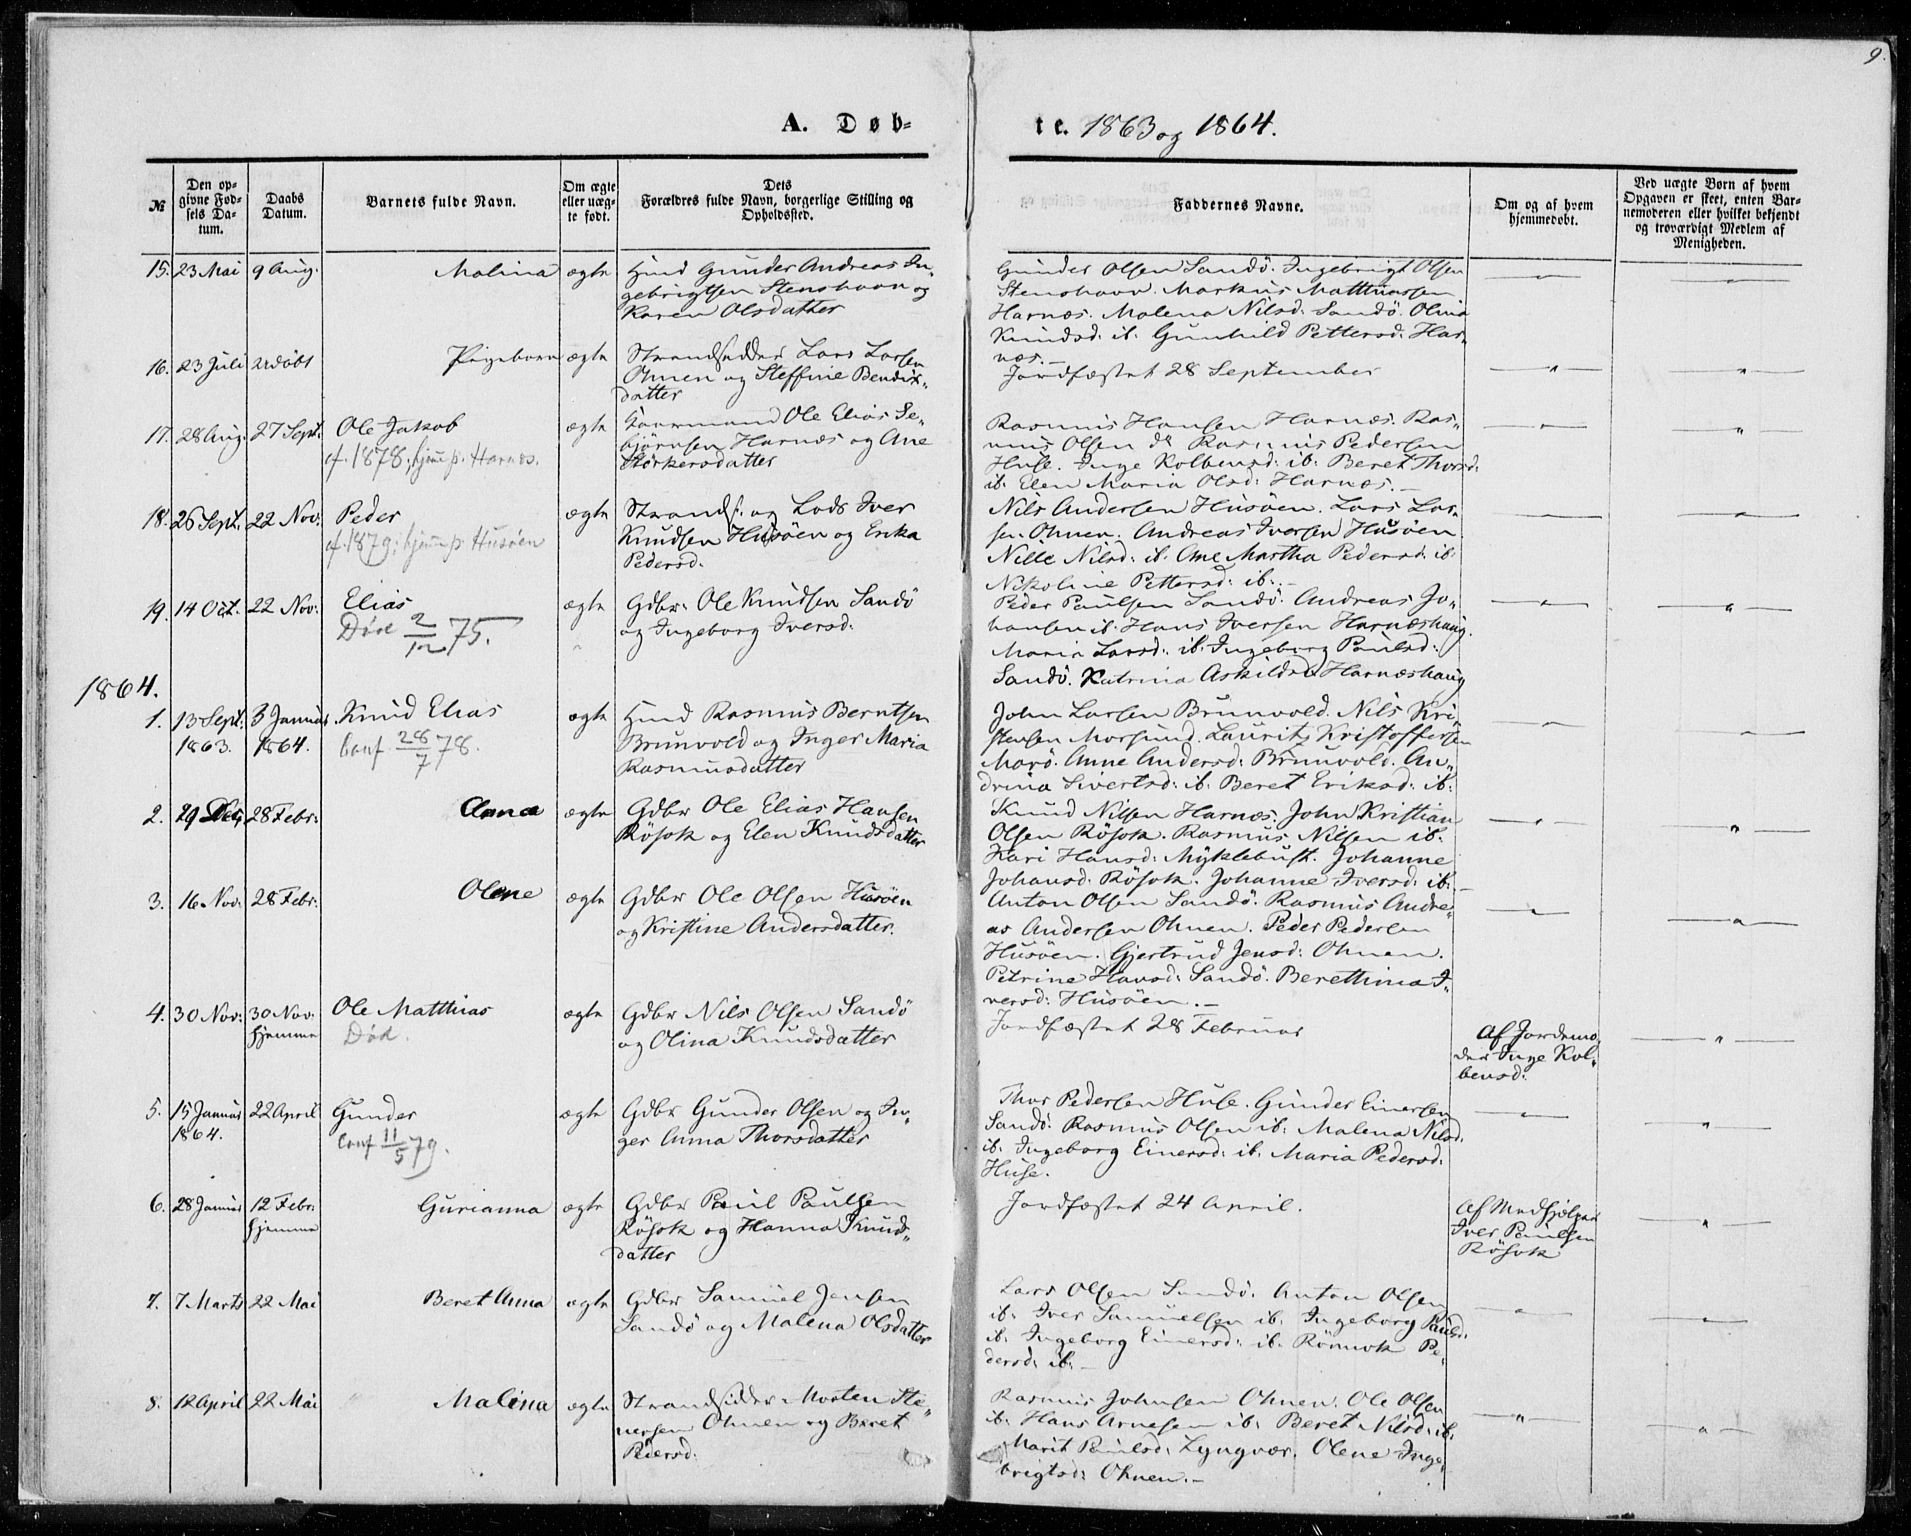 9.
A. Døb-
te. 1863 og 1864.
№
Den op-
givne Fød-
sels Da-
tum.
Daabs
Datum.
Barnets fulde Navn.
Om ægte
eller uæg-
te født.
Dets
Forældres fulde Navn, borgerlige Stilling og
Opholdssted.
Faddernes Navne.
Om og af hvem
hjemmedøbt.
Ved uægte Børn af hvem
Opgaven er skeet, enten Bar-
nemoderen eller hvilket bekjendt
og troværdigt Medlem af
Menigheden.
15. 23 Mai 9 Aug. Malina ægte Hmd Gunder Andreas In-
gebrigtsen Stenshavn og
Karen Olsdatter
Gunder Olsen Sandö. Ingebrigt Olsen
Stenshavn. Markus Matthiassen
Harnæs. Malena Nilsd: Sandö. Olina
Knudsd: ib: Gunhild Pettersd: Har-
næs.-
16. 23 Juli udöbt Pigebarn ægte Strandsidder Lars Larsen
Ohnen og Steffine Bendix-
datter
Jordfæstet 28 September
17. 28 Aug. 27 Sept. Ole Jakob ægte Ole Elias Se-
cf. 1878; hjem p. Harnæs.
björnsen Harnæs og Ane
Störkersdatter
Rasmus Hansen Harnæs. Ras-
mus Olsen do Rasmus Pedersen
Huse. Inge Kolbensd: ib: Beret Thorsd:
ib: Elen Maria Olsd: Harnæs.-
18. 26 Sept. 22 Nov: Peder ægte Strands: og Lods Iver
cf. 1879; hjem p. Husöen
Knudsen Husöen og Erika
Pedersd:
Nils Andersen Husöen. Lars Lar-
sen Ohnen. Andreas Iversen Husöen
Nille Nilsd: ib. Ane Martha Pedersd: ib:
Nikoline Pettersd: ib:.-
19. 14 Oct. 22 Nov: Elias ægte Gdbr: Ole Knudsen Sandö
Död 2/12 75.
og Ingeborg Iversd:
Peder Paulsen Sandö. Andreas Jo-
hansen ib. Hans Iversen Harnæshaug.
Maria Larsd: ib: Ingeborg Paulsd:
Sandö. Katrina Askildsd: Harnæshaug
1864.
1. 13 Sept: 3 Januar Knud Elias ægte Hmd Rasmus Berntsen
1863. 1864. Conf 28/7 78.
Brunvold og Inger Maria
Rasmusdatter
John Larsen Brunvold. Nils Kri-
stensen Morsund. Laurits Kristoffersen
Marö. Anne Andersd: Brunvold. An-
drina Sivertsd: ib: Beret Eriksd: ib:
2. 29 28 Febr: Anna ægte Gdbr Ole Elias Hansen
Rösok og Elen Knudsdatter
Knud Nilsen Harnæs. John Kristian
Olsen Rösok. Rasmus Nilsen ib.
Kari Hansd: Myklebust. Johanne
Johansd: Rösok. Johanne Iversd: ib:
3. 16 Nov: 28 Febr: Olene ægte Gdbr Ole Olsen Husöen
og Kristine Andersdatter.
Anton Olsen Sandö. Rasmus Andre-
as Andersen Ohnen. Peder Pedersen
Husöen. Gjertrud Jensd: Ohnen.
Petrine Hansd: Sandö. Berethina I-
versd: Husöen.-
4. 30 Nov: 30 Nov: Ole Matthias ægte Gdbr Nils Olsen Sandö
hjemme Död.
og Olina Knudsdatter
Jordfæstet 28 Februar
Af Jordemo-
der Inge Kol-
bensd:
5. 15 Januar 22 April Gunder ægte Gdbr Gunder Olsen og In-
1864. Conf 11/5 79.
ger Anna Thorsdatter
Thor Pedersen Huse. Gunder Einersen
Sandö. Rasmus Olsen ib. Malena Nilsd:
ib. Ingeborg Einersd: ib. Maria Pedersd:
Huse.
6. 28 Januar 12 Febr: Gurianna ægte Gdbr Paul Paulsen
hjemme
Rösok og Hanna Knuds-
datter
Jordfæstet 24 April.
Af Medhjelper
Iver Paulsen
Rösok
7. 7 Marts 22 Mai Beret Anna ægte Gdbr Samuel Jensen
Sandö og Malena Olsdatter
Lars Olsen Sandö. Anton Olsen
ib: Iver Samuelsen ib. Ingeborg Paulsd:
ib. Ingeborg Einersd: ib. Rönnok Pe-
dersd: ib.-
8. 12 April 22 Mai Malina ægte Strandsidder Morten Ste-
nersen Ohnen og Beret
Pedersd:
Rasmus Johnsen Ohnen. Ole Olsen
ib. Hans Arnesen ib: Beret Nilsd: ib.
Marit Paulsd: Lyngvær. Olene Inge-
brigtsd: Ohnen.-